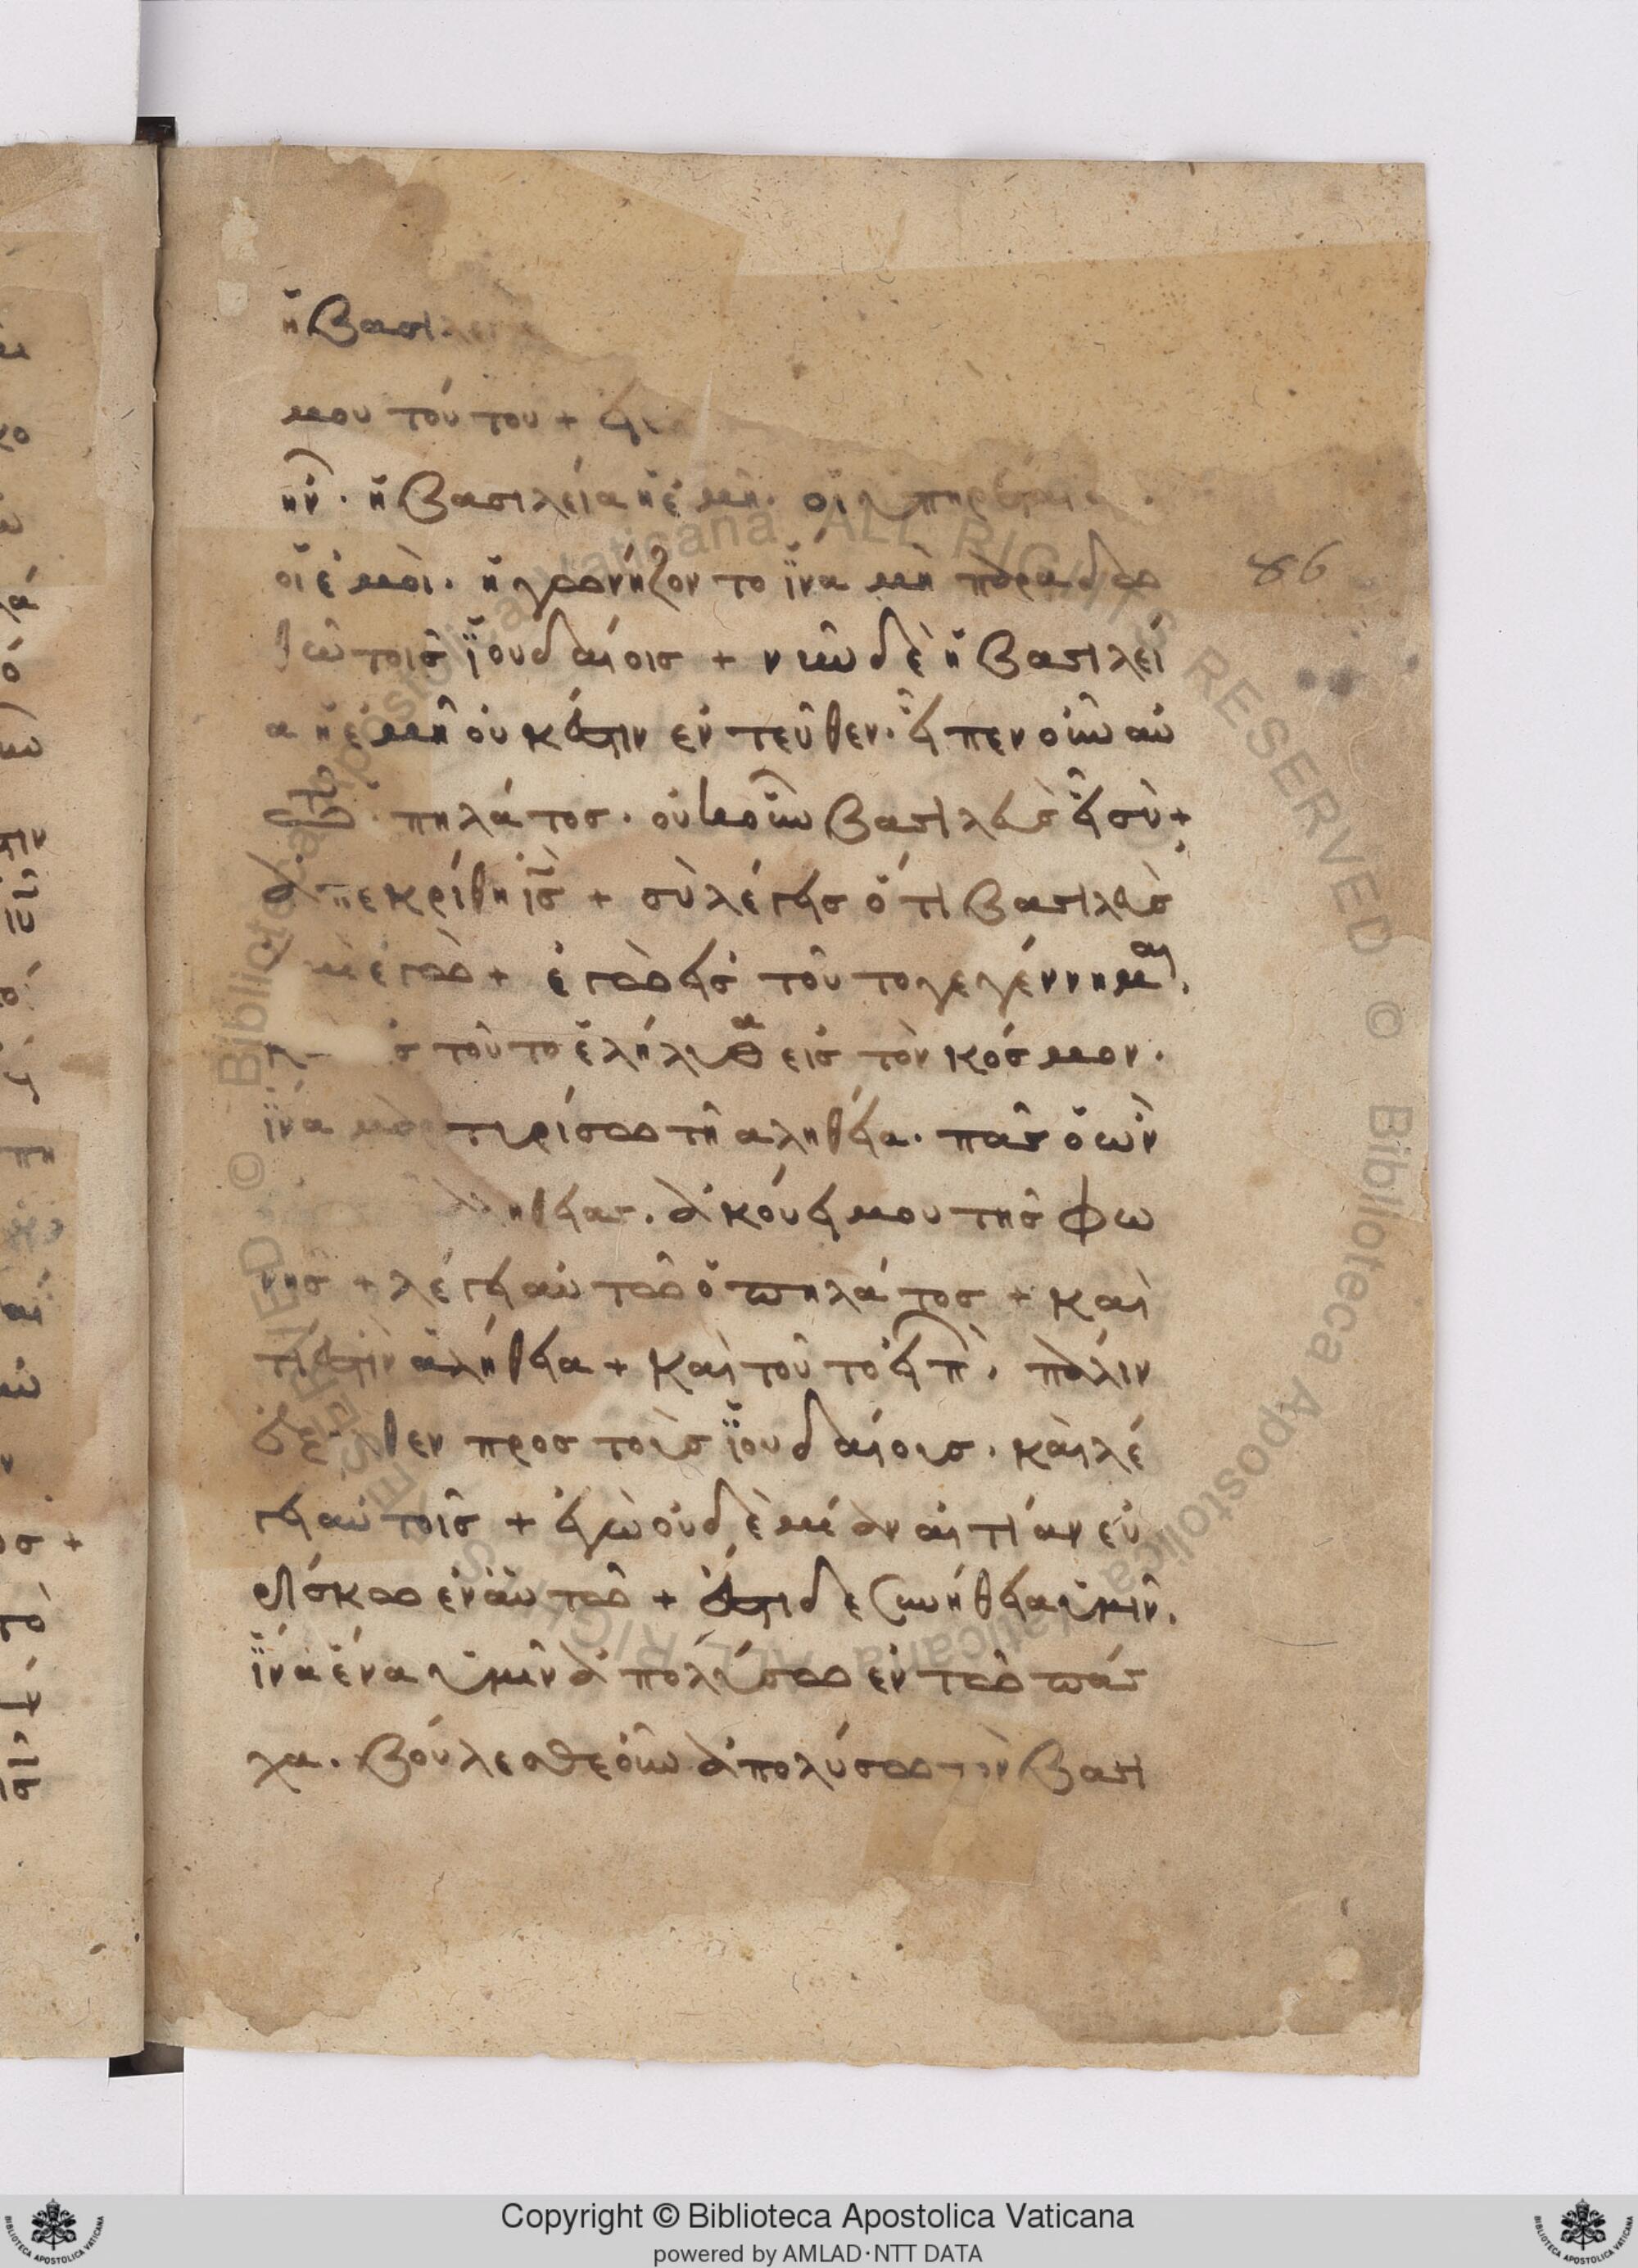 ἡ βασιλεία
μου τούτου + εἰ
ην. ἡ βασιλεία ἡ ἐμή. οἱ ὑπηρέται
οἱ ἐμοὶ. ἠγωνήζοντο ἵνα μὴ παραδω
θῶ τοῖς ἰουδαίοις + νῦν δὲ ἡ βασιλεί
α ἡ ἐμῆ οὐκ ἔστιν ἐντεῦθεν. εἶπεν οὖν αὐ
πηλάτος. οὐκοῦν βασιλεὺς εἶ σὺ +
ἀπεκρίθη ἰς + σὺ λέγεις ὅτι βασιλεὺς
εἰμὶ ἐγὼ + ἐγὼ εἰς τοῦτο γεγέννημαι.
εἰς τοῦτο ἐλήλυθα εἰς τὸν κόσμον.
ἵνα μαρτυρίσω τῆ αληθεία. πᾶς ὁ ὢν
ἀληθείας. ἀκούει μου τῆς φω
νης + λέγει αὐτῶ ὁ πηλάτος + καὶ
τί ἐστὶν ἀλήθεια + καὶ τοῦτο εἰπὼν. πάλιν
ἐξῆλθεν προς τοὺς ἰουδαίους. καὶ λέ
γει αὐτοῖς + ἐγὼ οὐδὲμίαν αἰτίαν εὑ
ρίσκω ἐν αὐτῶ + ἔστι δε συνήθεια ὑμῖν.
ἵνα ἕνα ὑμῖν ἀπολύσω ἐν τῶ πάσ
χα. βούλεσθε οὖν ἀπολύσω τὸν βασι
86
Copyright © Biblioteca Apostolica Vaticana
powered by AMLAD·NTT DATA
© Biblioteca Apostolica Vaticana ALL RIGHTS RESERVED
© Biblioteca Apostolica Vaticana ALL RIGHTS RESERVED
BIBLIOTECA APOSTOLICA VATICANA
BIBLIOTECA APOSTOLICA VATICANA